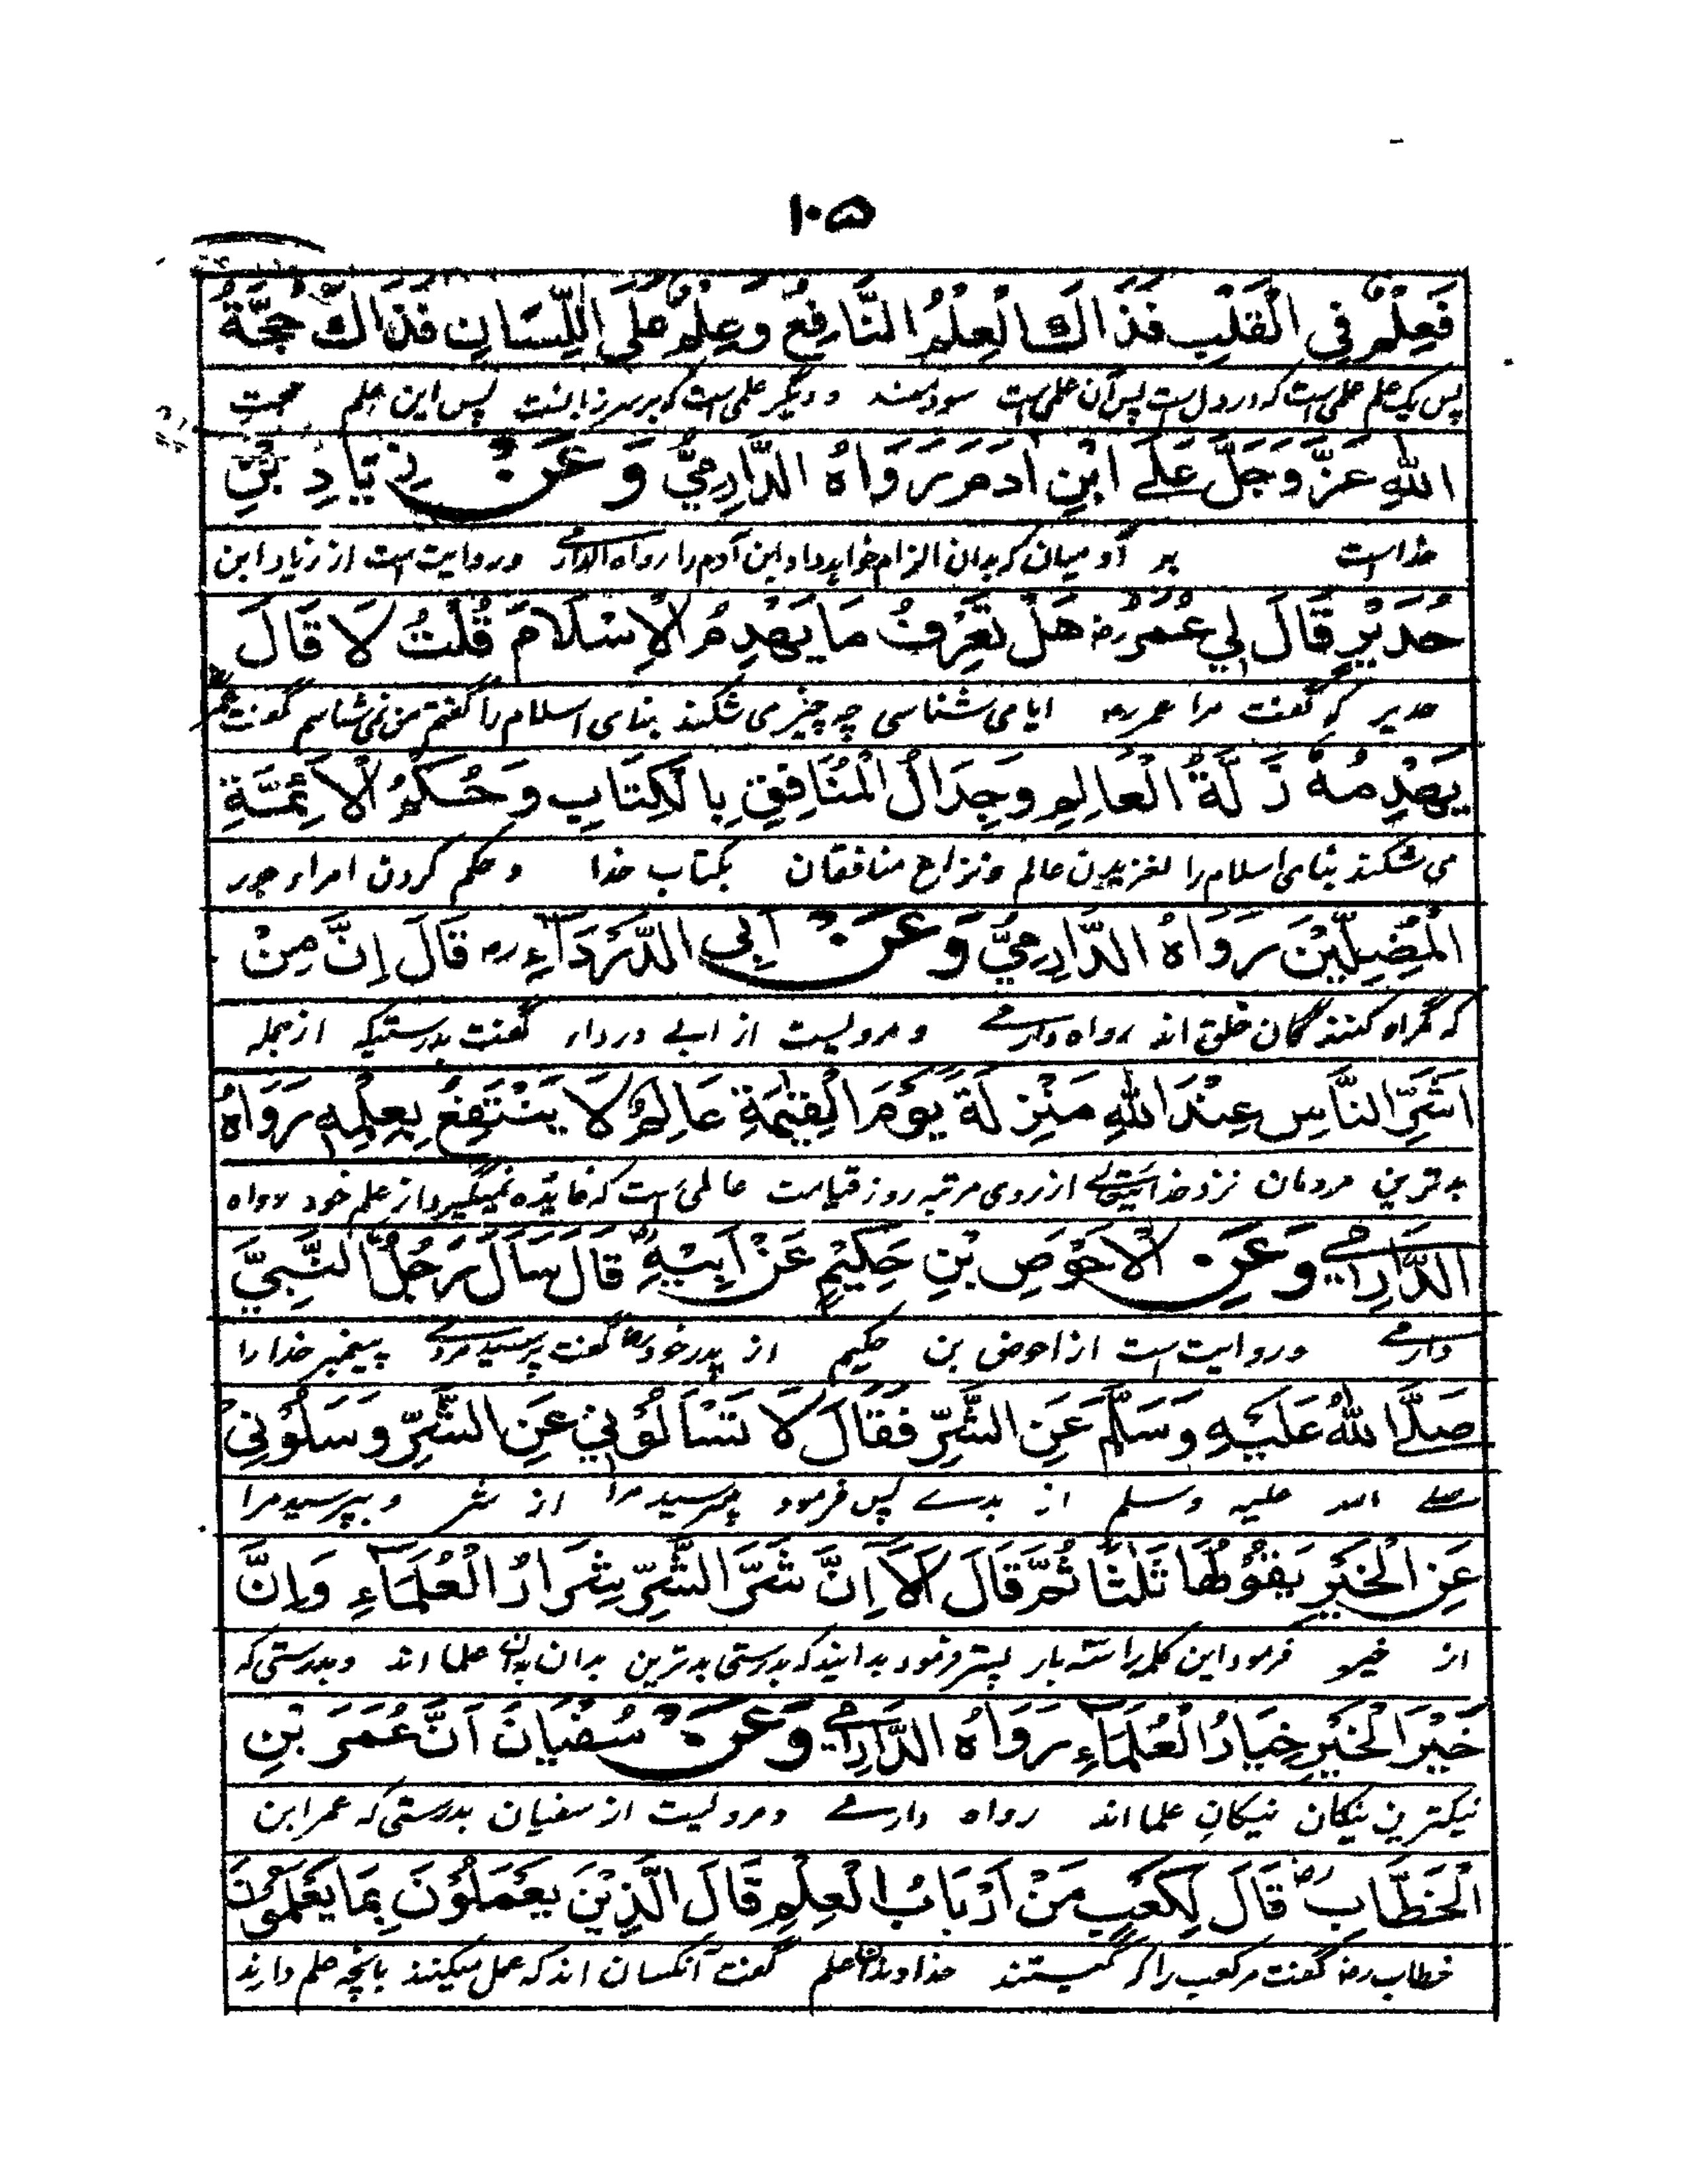 ۱۰۵
فَعِلْمٌ فِي الْقَلْبِ فَذَاكَ الْعِلْمُ النَّافِعُ وَعِلْمٌ عَلَى اللِّسَانِ فَذَاكَ حُجَّةُ
پس یک علم علمی است که در دل است پس آن علمی است سودمند و دیگر علمی است که بر سر زبانست پس این علم حجت
اللهِ عَزَّ وَجَلَّ عَلَى ابْنِ اٰدَمَ رَوَاهُ الدَّارِمِيُّ وَعَنْ زِيَادِ بْنِ
خداست بر آدمیان که بدان الزام خواهد داد ابن آدم را رواه الدارمی و روایت است از زیاد ابن
حُدَيْرٍ قَالَ لِي عُمَرُ رض هَلْ تَعْرِفُ مَا يَهْدِمُ الْاِسْلَامَ قُلْتُ لَا قَالَ
حدیر که گفت مرا عمر رض ایا می شناسی چه چیز می شکند بنای اسلام را گفتم من نمی شناسم گفت عمر
يَهْدِمُهٗ زَلَّةُ الْعَالِمِ وَجِدَالُ الْمُنَافِقِ بِالْكِتَابِ وَحُكْمُ الْاَئِمَّةِ
می شکند بنای اسلام را لغزیدن عالم و نزاع منافقان بکتاب خدا و حکم کردن امراء جور
الْمُضِلِّيْنَ رَوَاهُ الدَّارِمِيُّ وَعَنْ اَبِى الدَّرْدَآءِ رض قَالَ اِنَّ مِنْ
که گمراه کنندگان خلق اند رواه دارمی و مرویست از ابی درداء گفت بدرستیکه از جمله
اَشَرِّ النَّاسِ عِنْدَ اللهِ مَنْزِلَةً يَوْمَ الْقِيٰمَةِ عَالِمٌ لَا يَنْتَفِعُ بِعِلْمِهٖ رَوَاهُ
بدترین مردمان نزد خدایتعالی از روی مرتبه روز قیامت عالمی است که فایده نمیگیرد از علم خود رواه
الدَّارِمِي وَعَنِ الْاَحْوَصِ بْنِ حَكِيْمٍ عَنْ اَبِيْهِ رض قَالَ سَاَلَ رَجُلٌ النَّبِيَّ
دارمی و روایت است از احوض بن حکیم از پدر خود رض گفت پرسید مردی پیغمبر خدا را
صَلَّى اللهُ عَلَيْهِ وَسَلَّمَ عَنِ الشَّرِّ فَقَالَ لَا تَسْاَلُوْنِي عَنِ الشَّرِّ وَسَلُوْنِي
صلی الله علیه وسلم از بدی پس فرمود مپرسید مرا از شر و بپرسید مرا
عَنِ الْخَيْرِ يَقُوْلُهَا ثَلٰثًا ثُمَّ قَالَ اَلَا اِنَّ شَرَّ الشَّرِّ شِرَارُ الْعُلَمَآءِ وَاِنَّ
از خیر فرمود این کلمه را سه بار پستر فرمود بدانید که بدرستی بدترین بدان بدان علما اند و بدرستی که
خَيْرَ الْخَيْرِ خِيَارُ الْعُلَمَآءِ رَوَاهُ الدَّارِمِي وَعَنْ سُفْيَانَ اَنَّ عُمَرَ بْنِ
نیکترین نیکان نیکان علما اند رواه دارمی و مرویست از سفیان بدرستی که عمر ابن
الْخَطَّابِ رض قَالَ لِكَعْبٍ مَنْ اَرْبَابُ الْعِلْمِ قَالَ الَّذِيْنَ يَعْمَلُوْنَ بِمَا يَعْلَمُوْنَ
خطاب رض گفت مر کعب را که کیستند خداوندان علم گفت آنکسان اند که عمل میکنند بانچه علم دارند